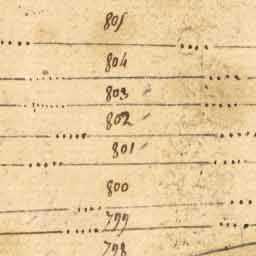 805
804
803
802
801
800
799
798